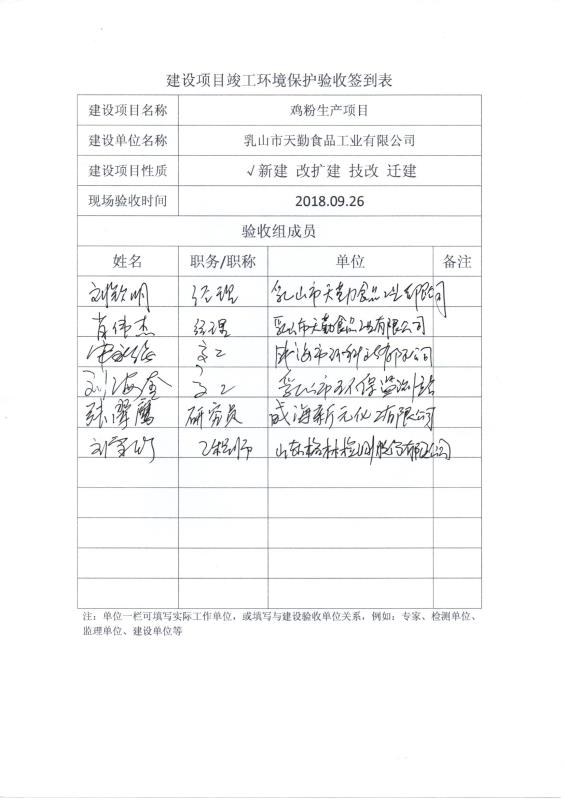 建设项目竣工环境保护验收签到表
建设项目名称 鸡粉生产项目
建设单位名称 乳山市天勤食品工业有限公司
建设项目性质 √新建 改扩建 技改 迁建
现场验收时间 2018.09.26
验收组成员
姓名 职务/职称 单位 备注
刘 明 经理 乳山市天勤食品工业有限公司
肖伟杰 经理 乳山市天勤食品工业有限公司
高工 威海市环科 有限公司
刘海金 高工 乳山市环保监测站
张翠鹰 研究员 威海新元化工有限公司
刘 工程师 山东格林检测股份有限公司
注：单位一栏可填写实际工作单位，或填写与建设验收单位关系，例如：专家、检测单位、
监理单位、建设单位等